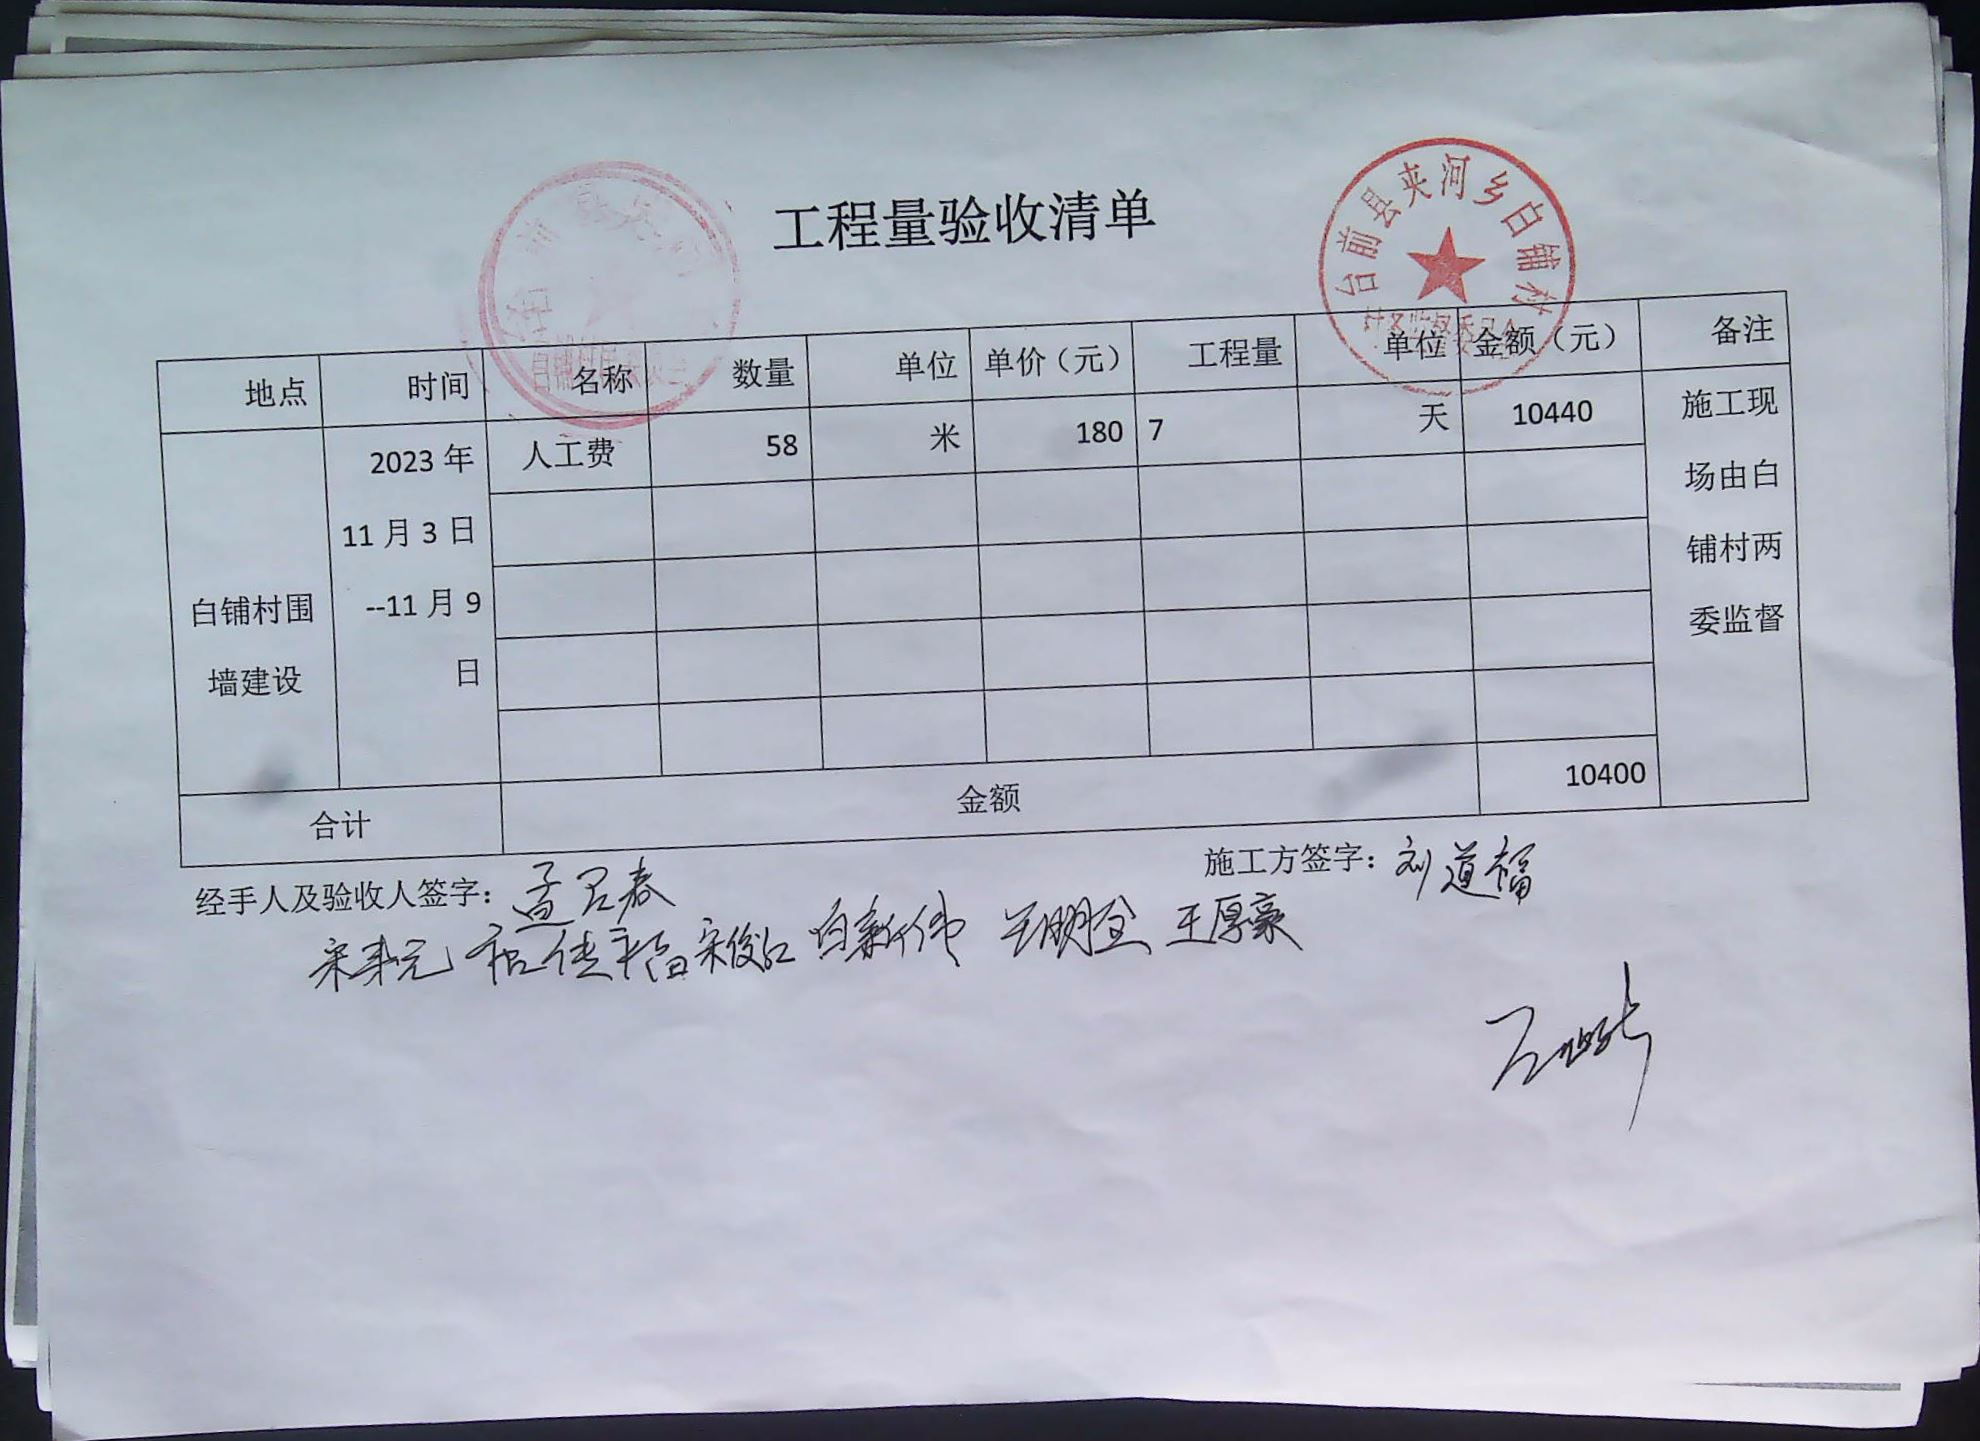 工程量验收清单
台前县夹河乡白铺村
地点 时间 名称 数量 单位 单价（元） 工程量 单位 金额（元） 备注
白铺村围
墙建设
2023 年
11 月 3 日
--11 月 9
日
人工费 58 米 180 7 天 10440
施工现
场由白
铺村两
委监督
合计 金额 10400
经手人及验收人签字：
施工方签字：刘道福
白新伟 王明全 王厚豪